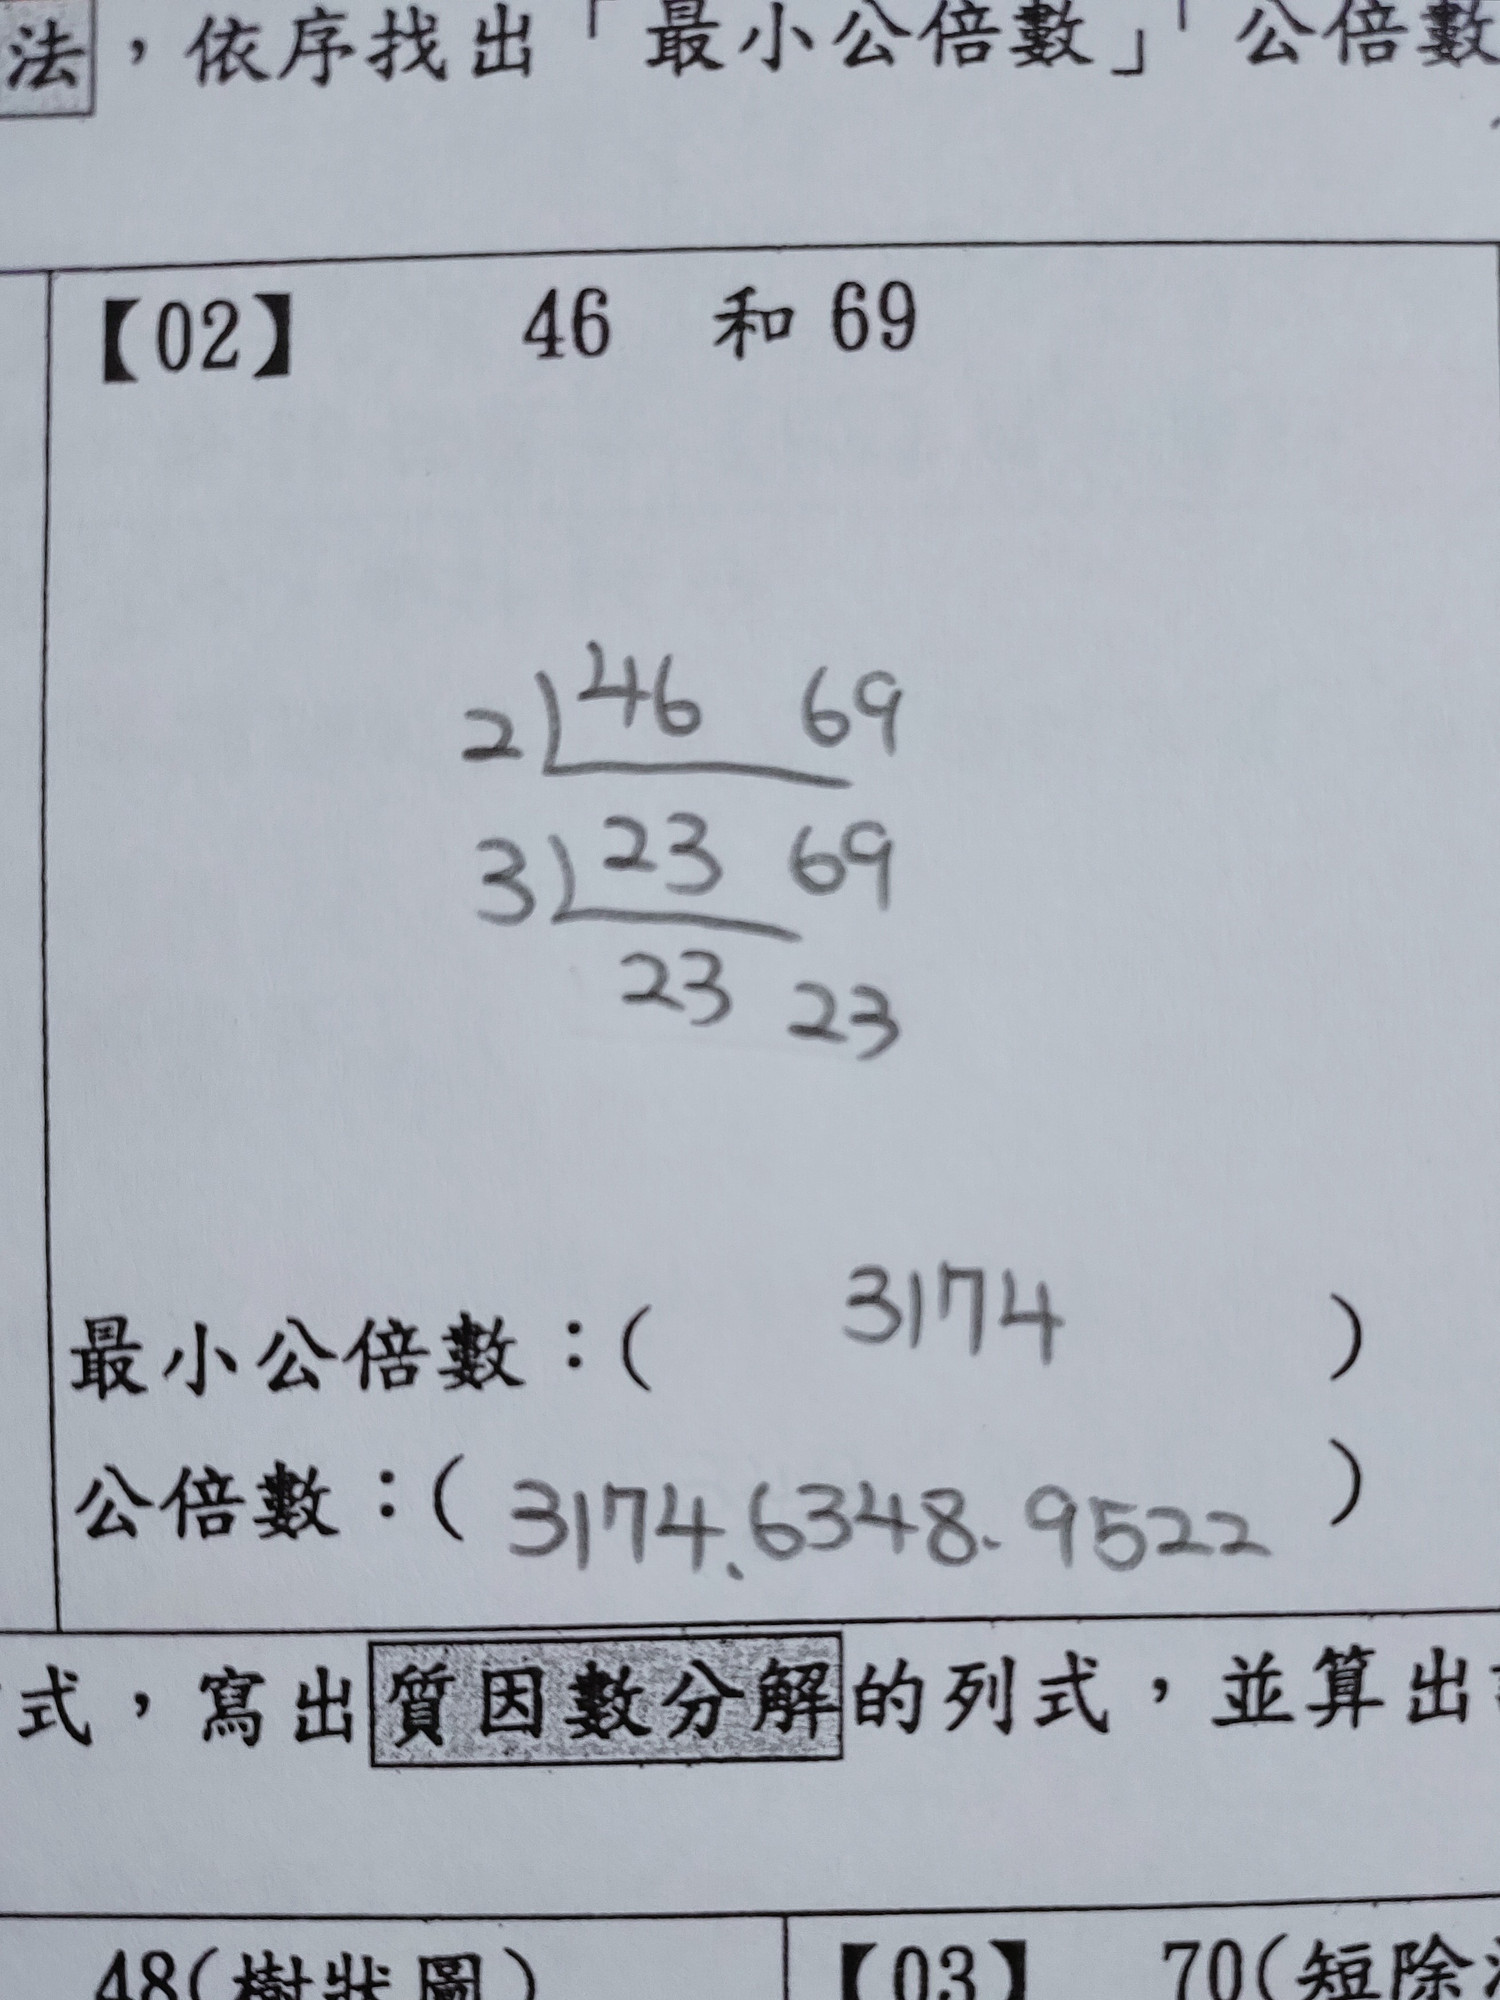 法，依序找出「最小公倍數」「公倍數
【02】 46 和 69
2 46 69
3 23 69
23 23
最小公倍數：( 3174 )
公倍數：( 3174、6348、9522 )
式，寫出質因數分解的列式，並算出
48(樹狀圖)
【03】 70(短除